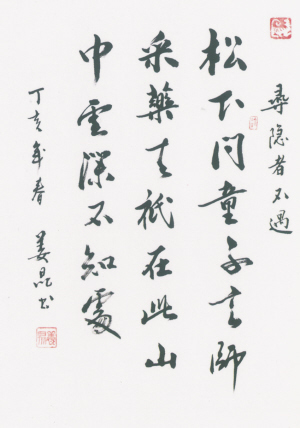 尋隐者不遇
松下问童子言師
采藥去祇在此山
中雲深不知處
丁亥年春 姜昆书